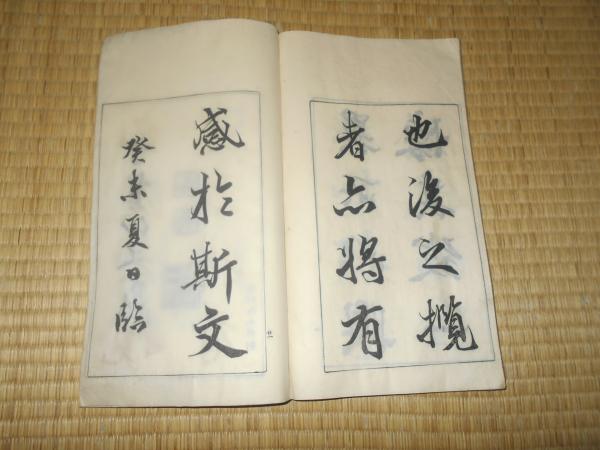 也後之攬
者亦将有
感於斯文
癸未夏日臨